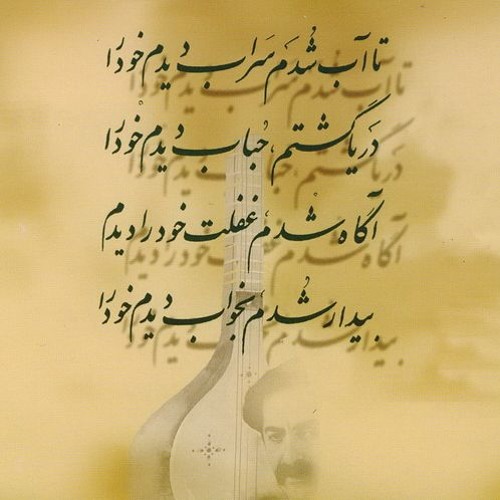 تا آب شدم سراب دیدم خود را
دریا گشتم، حباب دیدم خود را
آگاه شدم، غفلت خود را دیدم
بیدار شدم بخواب دیدم خود را